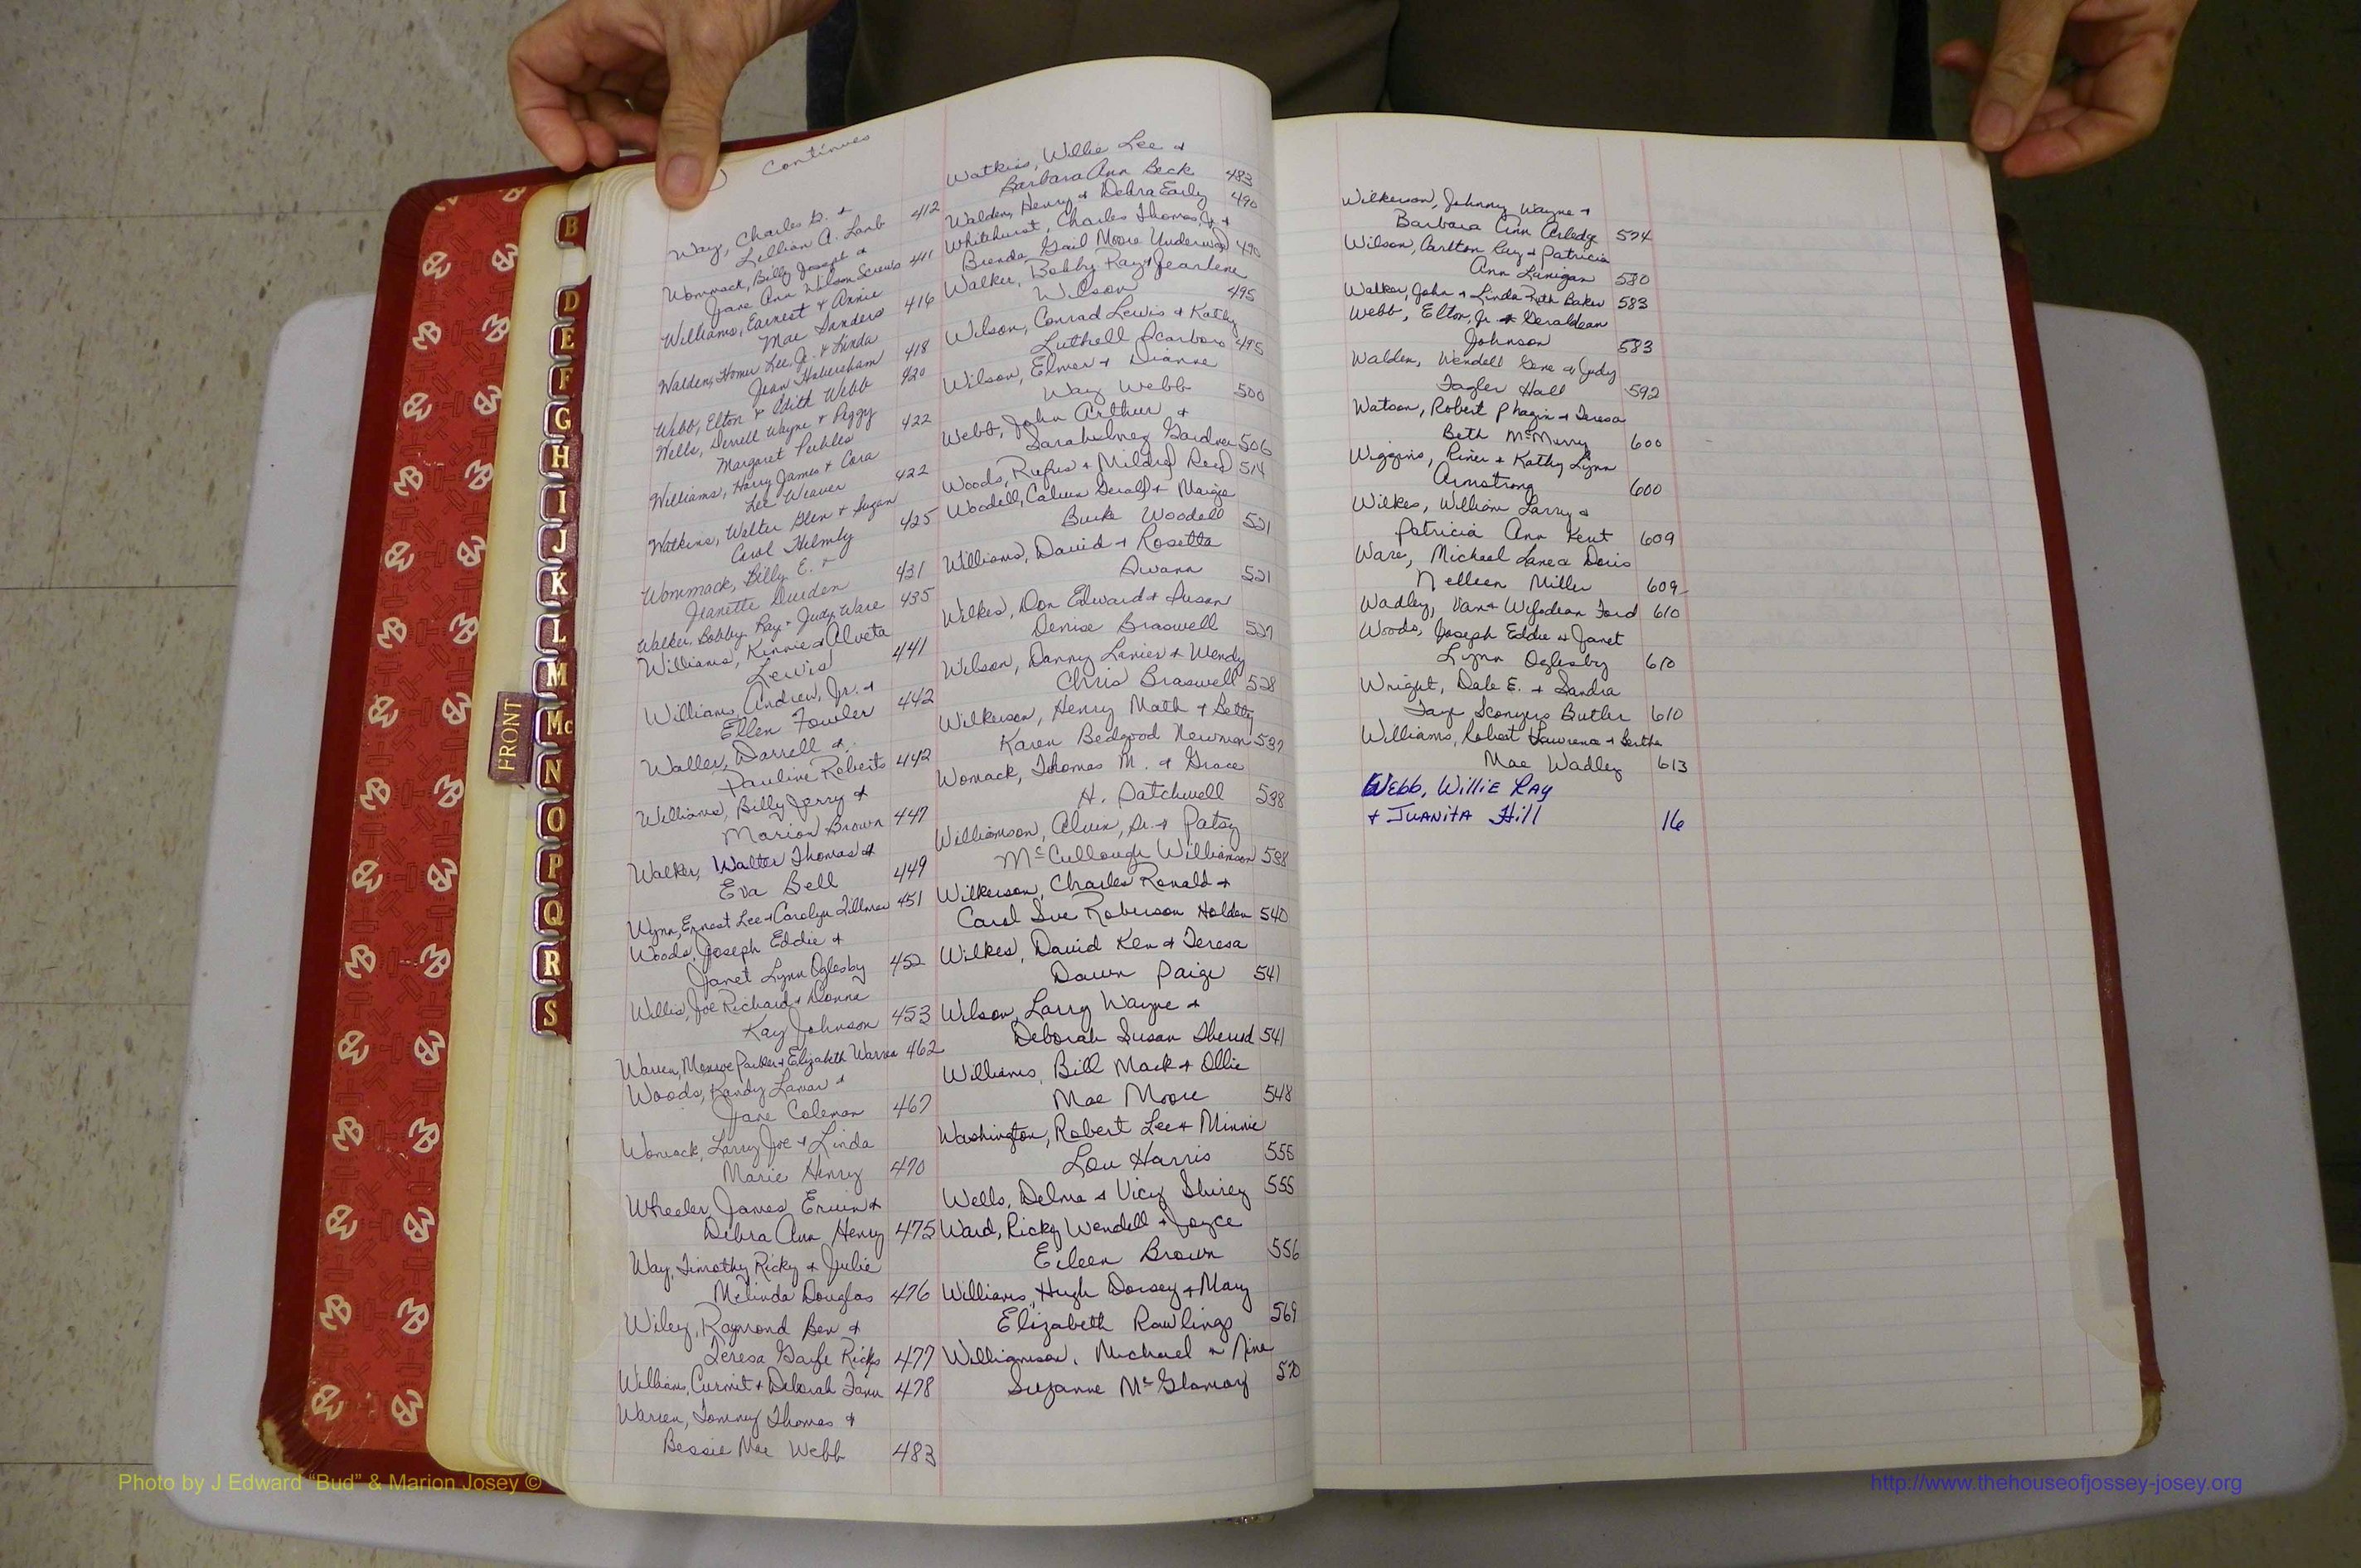 Continues
Way, Charles D. +
Lillian A. Lamb 412
Wommack, Billy Joseph +
Jane Ann Wilson Screws 411
Williams, Earnest + Annie
Mae Sanders 416
Walden, Homer Lee, Jr. + Linda
Jean Habersham 418
Webb, Elton + Edith Webb 420
Wells, Derrell Wayne + Peggy
Margaret Peebles 422
Williams, Harry James + Cora
Lee Weaver 422
Watkins, Walter Glen + Susan
Carol Helmly 425
Wommack, Billy E. +
Jeanette Durden 431
Walker, Bobby Ray + Judy Ware 435
Williams, Kinnie + Alveta
Lewis 441
Williams, Andrew, Jr. +
Ellen Fowler 442
Waller, Darrell +
Pauline Roberts 442
Williams, Billy Jerry +
Marion Brown 447
Walker, Walter Thomas +
Eva Bell 449
Wynn, Ernest Lee + Carolyn Tillman 451
Woods, Joseph Eddie +
Janet Lynn Oglesby 452
Willis, Joe Richard + Donna
Kay Johnson 453
Warren, Monroe Parker + Elizabeth Warren 462
Woods, Randy Lamar +
Jane Coleman 467
Womack, Larry Joe + Linda
Marie Henry 470
Wheeler, James Erwin +
Debra Ann Henry 475
Way, Timothy Ricky + Julie
Melinda Douglas 476
Wiley, Raymond Ben +
Teresa Gayle Ricks 477
Williams, Curmit + Deborah 478
Warren, Tommy Thomas +
Bessie Mae Webb 483
Watkins, Willie Lee +
Barbara Ann Beck 483
Walden, Henry + Debra Early 490
Whitehurst, Charles Thomas, Jr. +
Brenda Gail Moore Underwood 490
Walker, Bobby Ray + Jearlene
Wilson 495
Wilson, Conrad Lewis + Kathy
Luthell Scarboro 495
Wilson, Elmer + Dianne
Way Webb 500
Webb, John Arthur +
Sarah Gardner 506
Woods, Rufus + Mildred Reed 514
Woodell, Calvin Gerald + Margie
Burke Woodell 521
Williams, David + Rosetta
Swann 521
Wilkes, Don Edward + Susan
Denise Braswell 527
Wilson, Danny Lanier + Wendy
Chris Braswell 528
Wilkerson, Henry Math + Betty
Karen Bedgood Newman 537
Womack, Thomas M. + Grace
H. Patchwell 538
Williamson, Alvin, Sr. + Patsy
McCullough Williamson 538
Wilkerson, Charles Ronald +
Carol Sue Roberson Holden 540
Wilkes, David Ken + Teresa
Dawn Paige 541
Wilson, Larry Wayne +
Deborah Susan Sherrod 541
Williams, Bill Mack + Ollie
Mae Moore 548
Washington, Robert Lee + Minnie
Lou Harris 555
Wells, Delma + Vicy Shirey 555
Ward, Ricky Wendell + Joyce
Eileen Brown 556
Williams, Hugh Dorsey + Mary
Elizabeth Rawlings 569
Williamson, Michael + Nina
Suzanne McGlamory 570
Wilkerson, Johnny Wayne +
Barbara Ann Arledge 574
Wilson, Carlton Ray + Patricia
Ann Lanigan 580
Walker, John + Linda Ruth Baker 583
Webb, Elton, Jr. + Geraldean
Johnson 583
Walden, Wendell Gene + Judy
Hall 592
Watson, Robert Phagin + Teresa
Beth McMurry 600
Wiggins, Riner + Kathy Lynn
Armstrong 600
Wilkes, William Larry +
Patricia Ann Kent 609
Ware, Michael Lane + Doris
Nelleen Miller 609
Wadley, Van + Wyodean Ford 610
Woods, Joseph Eddie + Janet
Lynn Oglesby 610
Wright, Dale E. + Sandra
Faye Sconyers Butler 610
Williams, Robert Lawrence + Bertha
Mae Wadley 613
Webb, Willie Ray
+ Juanita Hill 16
FRONT
B
D
E
F
G
H
I
J
K
L
M
Mc
N
O
P
Q
R
S
Photo by J Edward “Bud” & Marion Josey ©
http://www.thehouseofjossey-josey.org